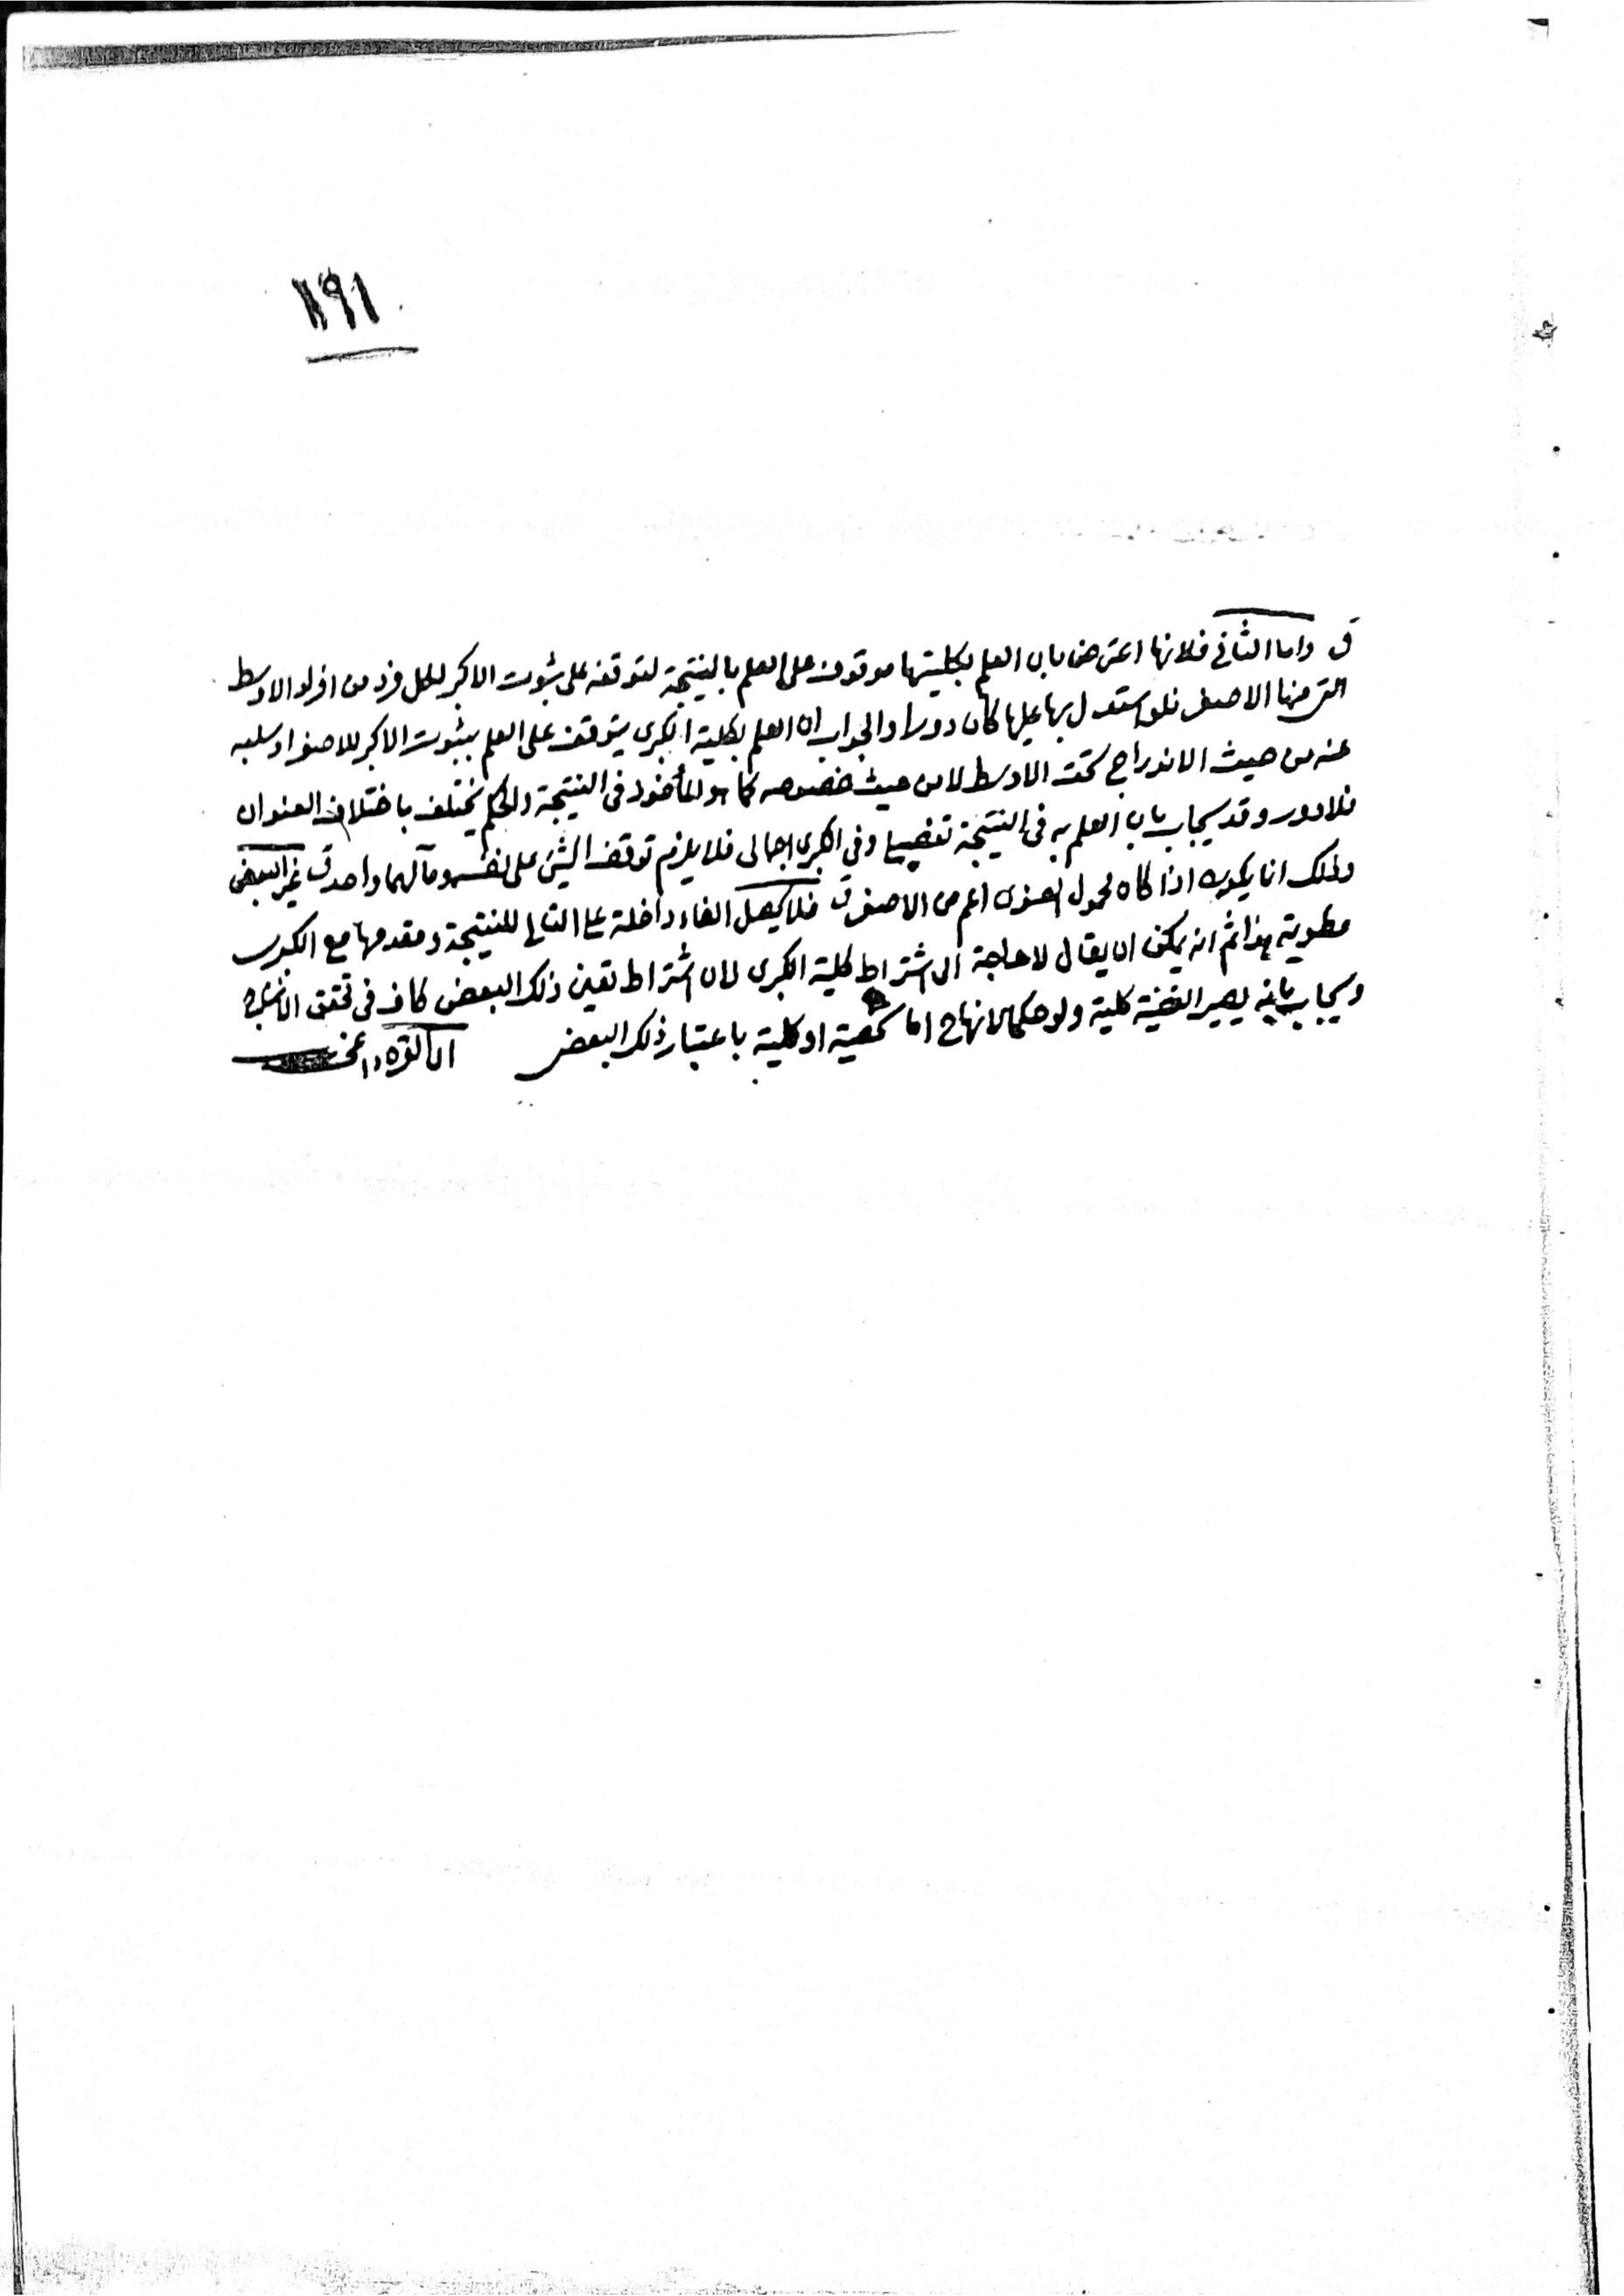 ١١٩١
ق واما الثانى فلانها اعترض بان العلم بكليتها موقوف على العلم بالنتيجة لتوقفه على ثبوت الاكبر لكل فرد من افراد الاوسط
التى منها الاصغر فلو استدل بها عليها كان دورا والجواب ان العلم بكلية الكبرى يتوقف على العلم بثبوت الاكبر للاصغر او سلبه
عنه من حيث الاندراج تحت الاوسط لا من حيث خصوصه كما هو المأخوذ فى النتيجة والحكم يختلف باختلاف العنوان
فلا دور وقد يجاب بان العلم به فى النتيجة تفصيلى وفى الكبرى اجمالى فلا يلزم توقف الشئ على نفسه ومآلهما واحد ق غير البعض
وذلك انما يكون اذا كان محمول الصغرى اعم من الاصغر ق فلا يحصل الفاء داخلة على التالى للنتيجة ومقدمها مع الكبرى
مطوية هذا ثم انه يمكن ان يقال لا حاجة الى اشتراط كلية الكبرى لان اشتراط تعين ذلك البعض كاف فى تحقق الانتاج
ويجاب بانه يصير القضية كلية ولو حكما لانها ح اما شخصية او كلية باعتبار ذلك البعض